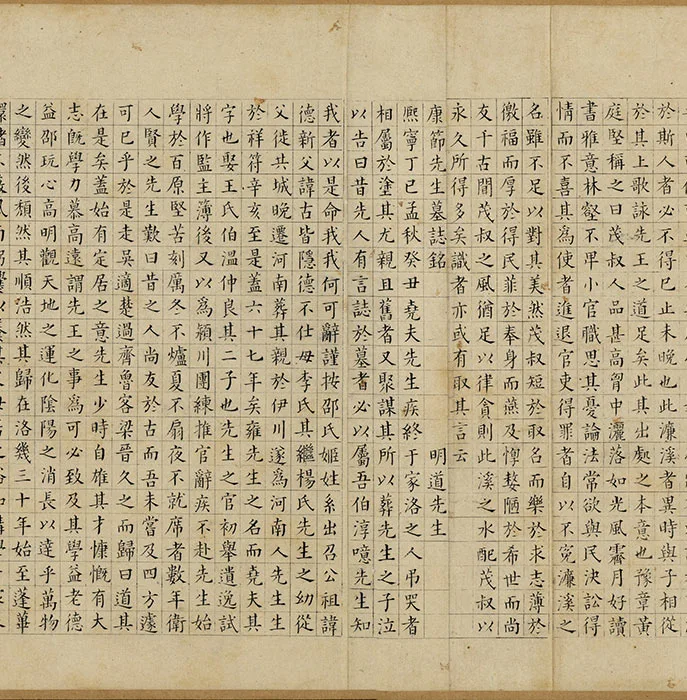 於斯人者必不得已止未晚也此濂溪者異時與子相從
於其上歌詠先王之道足矣此其出處之本意也豫章黃
庭堅稱之曰茂叔人品甚高胷中灑落如光風霽月好讀
書雅意林壑不卑小官職思其憂論法常欲與民決訟得
情而不喜其為使者進退官吏得罪者自以不寃濂溪之
名雖不足以對其美然茂叔短於取名而樂於求志薄於
徼福而厚於得民菲於奉身而燕及惸嫠陋於希世而尚
友千古聞茂叔之風猶足以律貪則此溪之水配茂叔以
永久所得多矣識者亦或有取其言云
康節先生墓誌銘 明道先生
熈寧丁巳孟秋癸丑堯夫先生疾終于家洛之人弔哭者
相屬於塗其尤親且舊者又聚謀其所以葬先生之子泣
以告曰昔先人有言誌於墓者必以屬吾伯淳噫先生知
我者以是命我我何可辭謹按邵氏姬姓系出召公祖諱
德新父諱古皆隱德不仕母李氏其繼楊氏先生之幼從
父徙共城晚遷河南葬其親於伊川遂為河南人先生生
於祥符辛亥至是蓋六十七年矣雍先生之名而堯夫其
字也娶王氏伯溫仲良其二子也先生之官初舉遺逸試
將作監主簿後又以為潁川團練推官辭疾不赴先生始
學於百原堅苦刻厲冬不爐夏不扇夜不就席者數年衛
人賢之先生歎曰昔之人尚友於古而吾未嘗及四方遽
可已乎於是走吳適楚過齊魯客梁晉久之而歸曰道其
在是矣蓋始有定居之意先生少時自雄其才慷慨有大
志既學力慕高遠謂先王之事為可必致及其學益老德
益邵玩心高明觀天地之運化陰陽之消長以達乎萬物
之變然後頹然其順浩然其歸在洛幾三十年始至蓬蓽